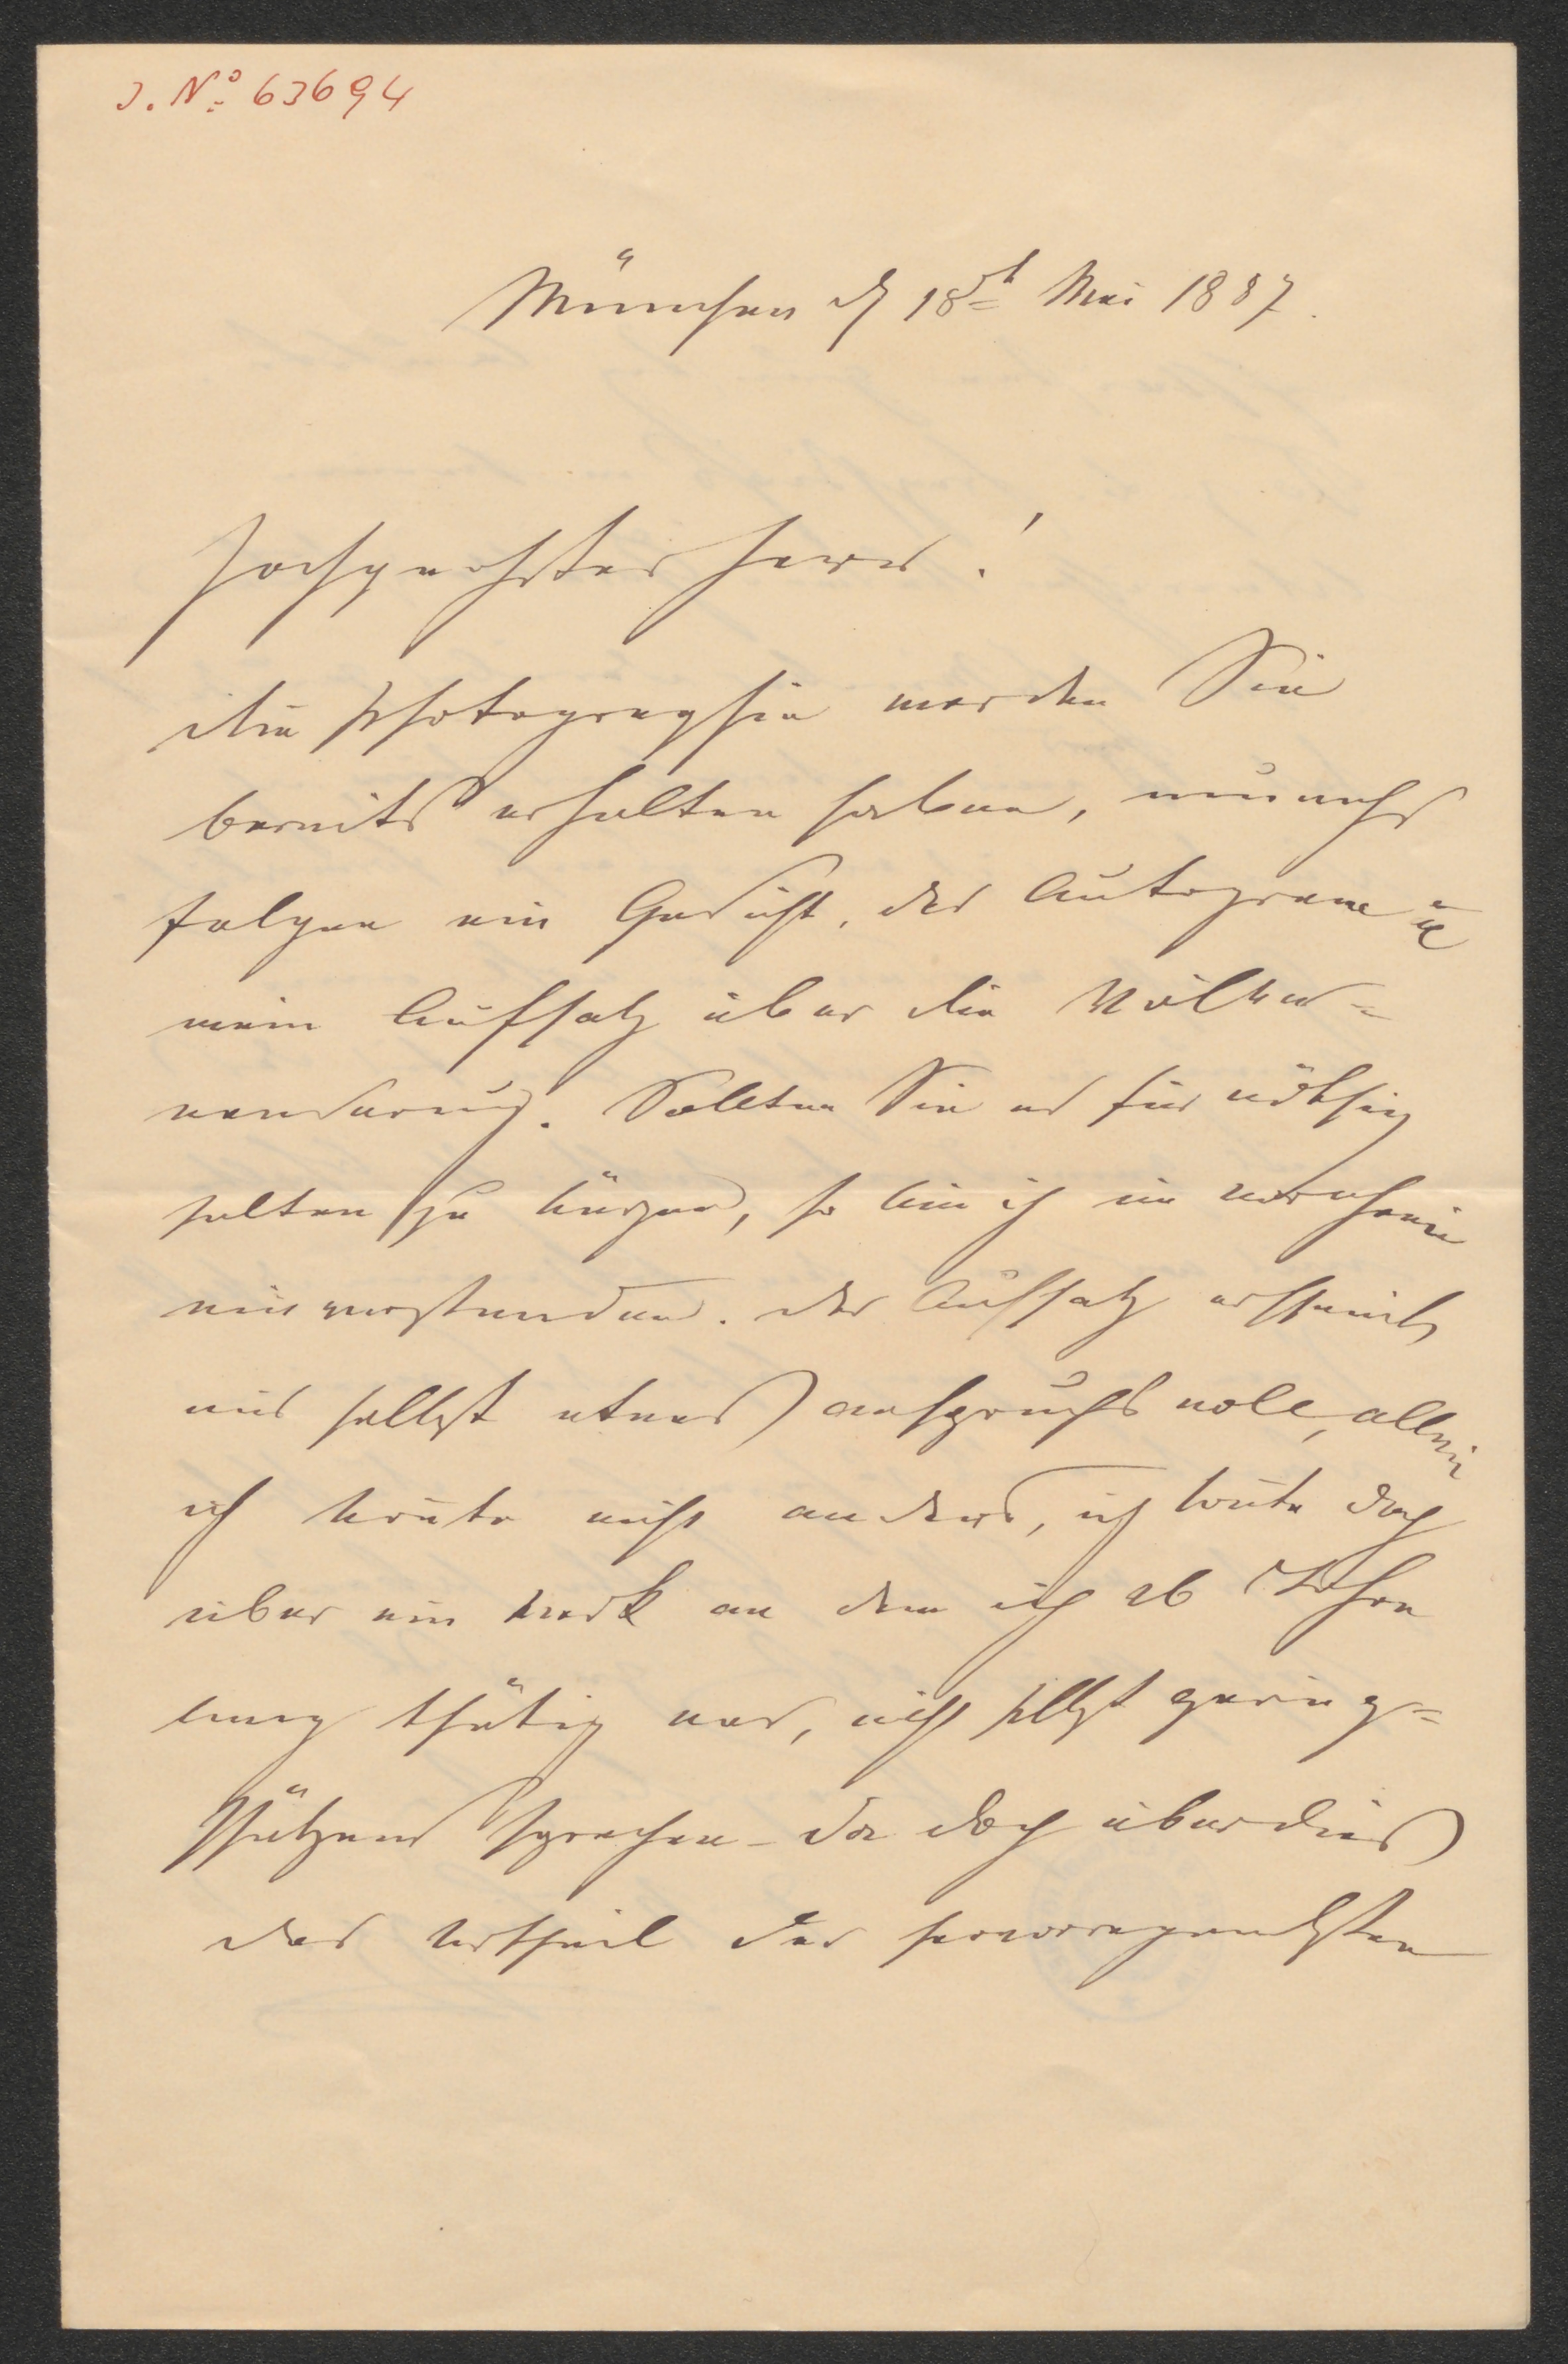 J. No 63694
München d 18t Mai 1887.
Hochgeehrter Herr!
die Photographie werden Sie
bereits erhalten haben,
folgen ein Gedicht, das Autogram u
mein Aufsatz über die Völker=
wanderung. Sollten Sie es für nöthig
halten zu kürzen, so bin ich im vorhinein
einverstanden. der Aufsatz erscheint
mir selbst etwas anspruchsvoll, allein
ich konnte nicht anders, ich konnte doch
über ein Werk an dem ich 26 Jahre
lang thätig war, nicht selbst gering=
schätzend sprechen - da doch überdies
das Urtheil der hervorragendsten